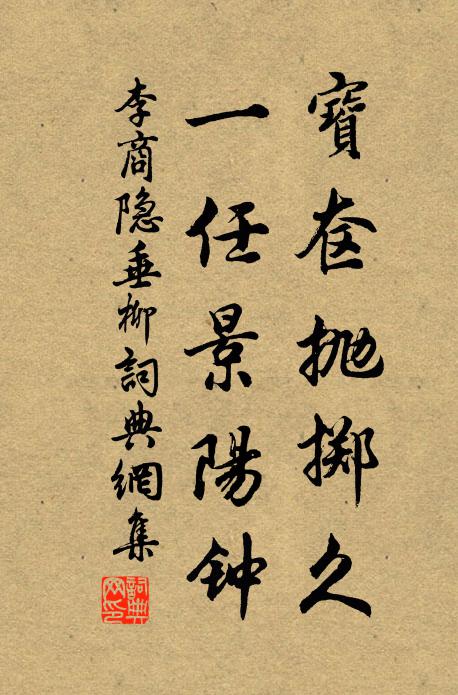 寶奁抛掷久
一任景陽钟
李商隐垂柳詞典網集
詞典网印